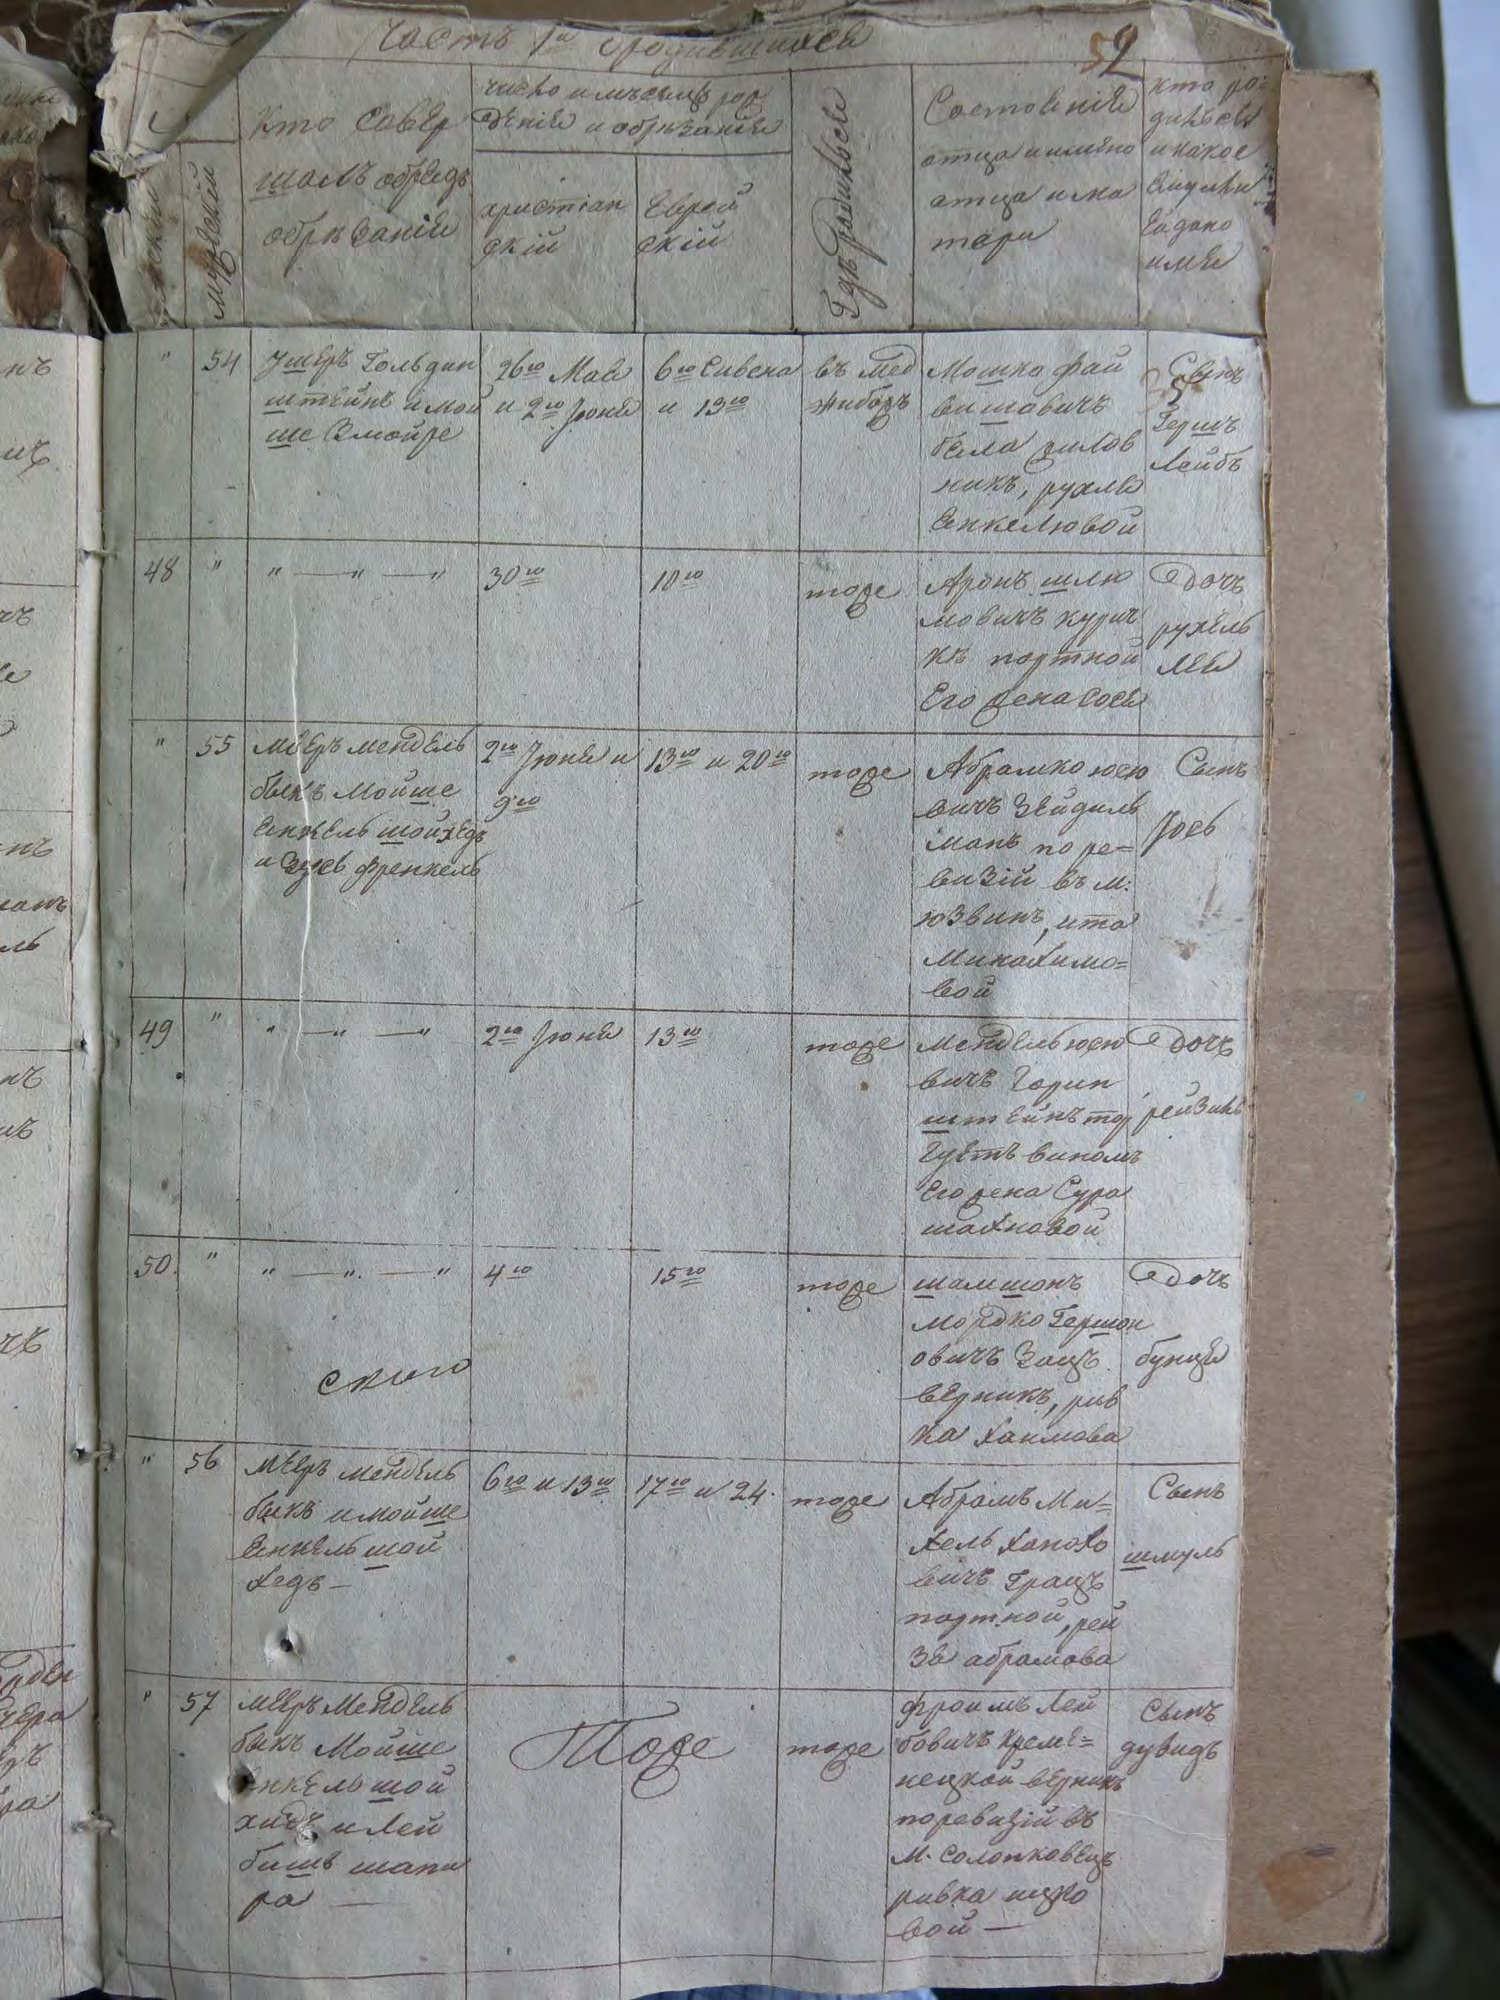 Часть 1я о родившихся
52
женский
мужеский
Кто совер
шалъ обрядъ
обрѣзанія
число и мѣсяцъ рож
денія и обрѣзанія
христіан
скій
Еврей
скій
Гдѣ родился
Состояніе
отца и имѣно
отца и ма
тери
кто ро=
дился
и какое
ему или
ей дано
имя
" 54
Ушеръ Гольдин
штейнъ и мой
ше Змойре
26го Мая
и 2го Іюня
6го Сивена
и 13го
въ мед
жибожъ
Мошко фай
вишовичъ
бела
никъ, рухля
Янкелювой
Сынъ
Гершъ
Лейбъ
48 " " — " — "
30го
10го
тоже
Аронъ шлю
мовичъ
портной
Его жена Сося
дочь
рухель
лея
" 55
Меръ мендель
быкъ мойше
Янкель шойхедъ
и Зусь френкель
2го Іюня и
9го
13го и 20го
тоже
Абрамко юсю
вичъ Зейдиль
манъ по ре=
визіи въ м:
юзвинъ, ита
Минахимо=
вой
Сынъ
Іось
49 " " — " — "
2го Іюня
13го
тоже
Мендель юсю
вичъ Горин
штейнъ тор
гуетъ виномъ
Его жена Сура
шахновой
дочь
рейзиль
50. " " — ". — "
4го
15го
тоже
шамшонъ
мордко Гершон
овичъ Зацъ
верникъ, рив
ка Хаимова
дочь
бунця
скаго
" 56
Меръ мендель
быкъ и мойше
Янкель шой
хедъ —
6го и 13го
17го и 24.
тоже
Абрамъ Ми=
хель Ханохо
вичъ Грацъ
портной, рей
зя абрамова
Сынъ
шмуль
" 57
Меръ Мендель
быкъ Мойше
янкель шой
хидъ и Лей
бишъ шапи
ра —
Тоже
тоже
Фроимъ Лей
бовичъ Креме=
нецкой верникъ
поревизіи въ
м. Солопковецъ
ривка ицко
вой —
Сынъ
дувидъ